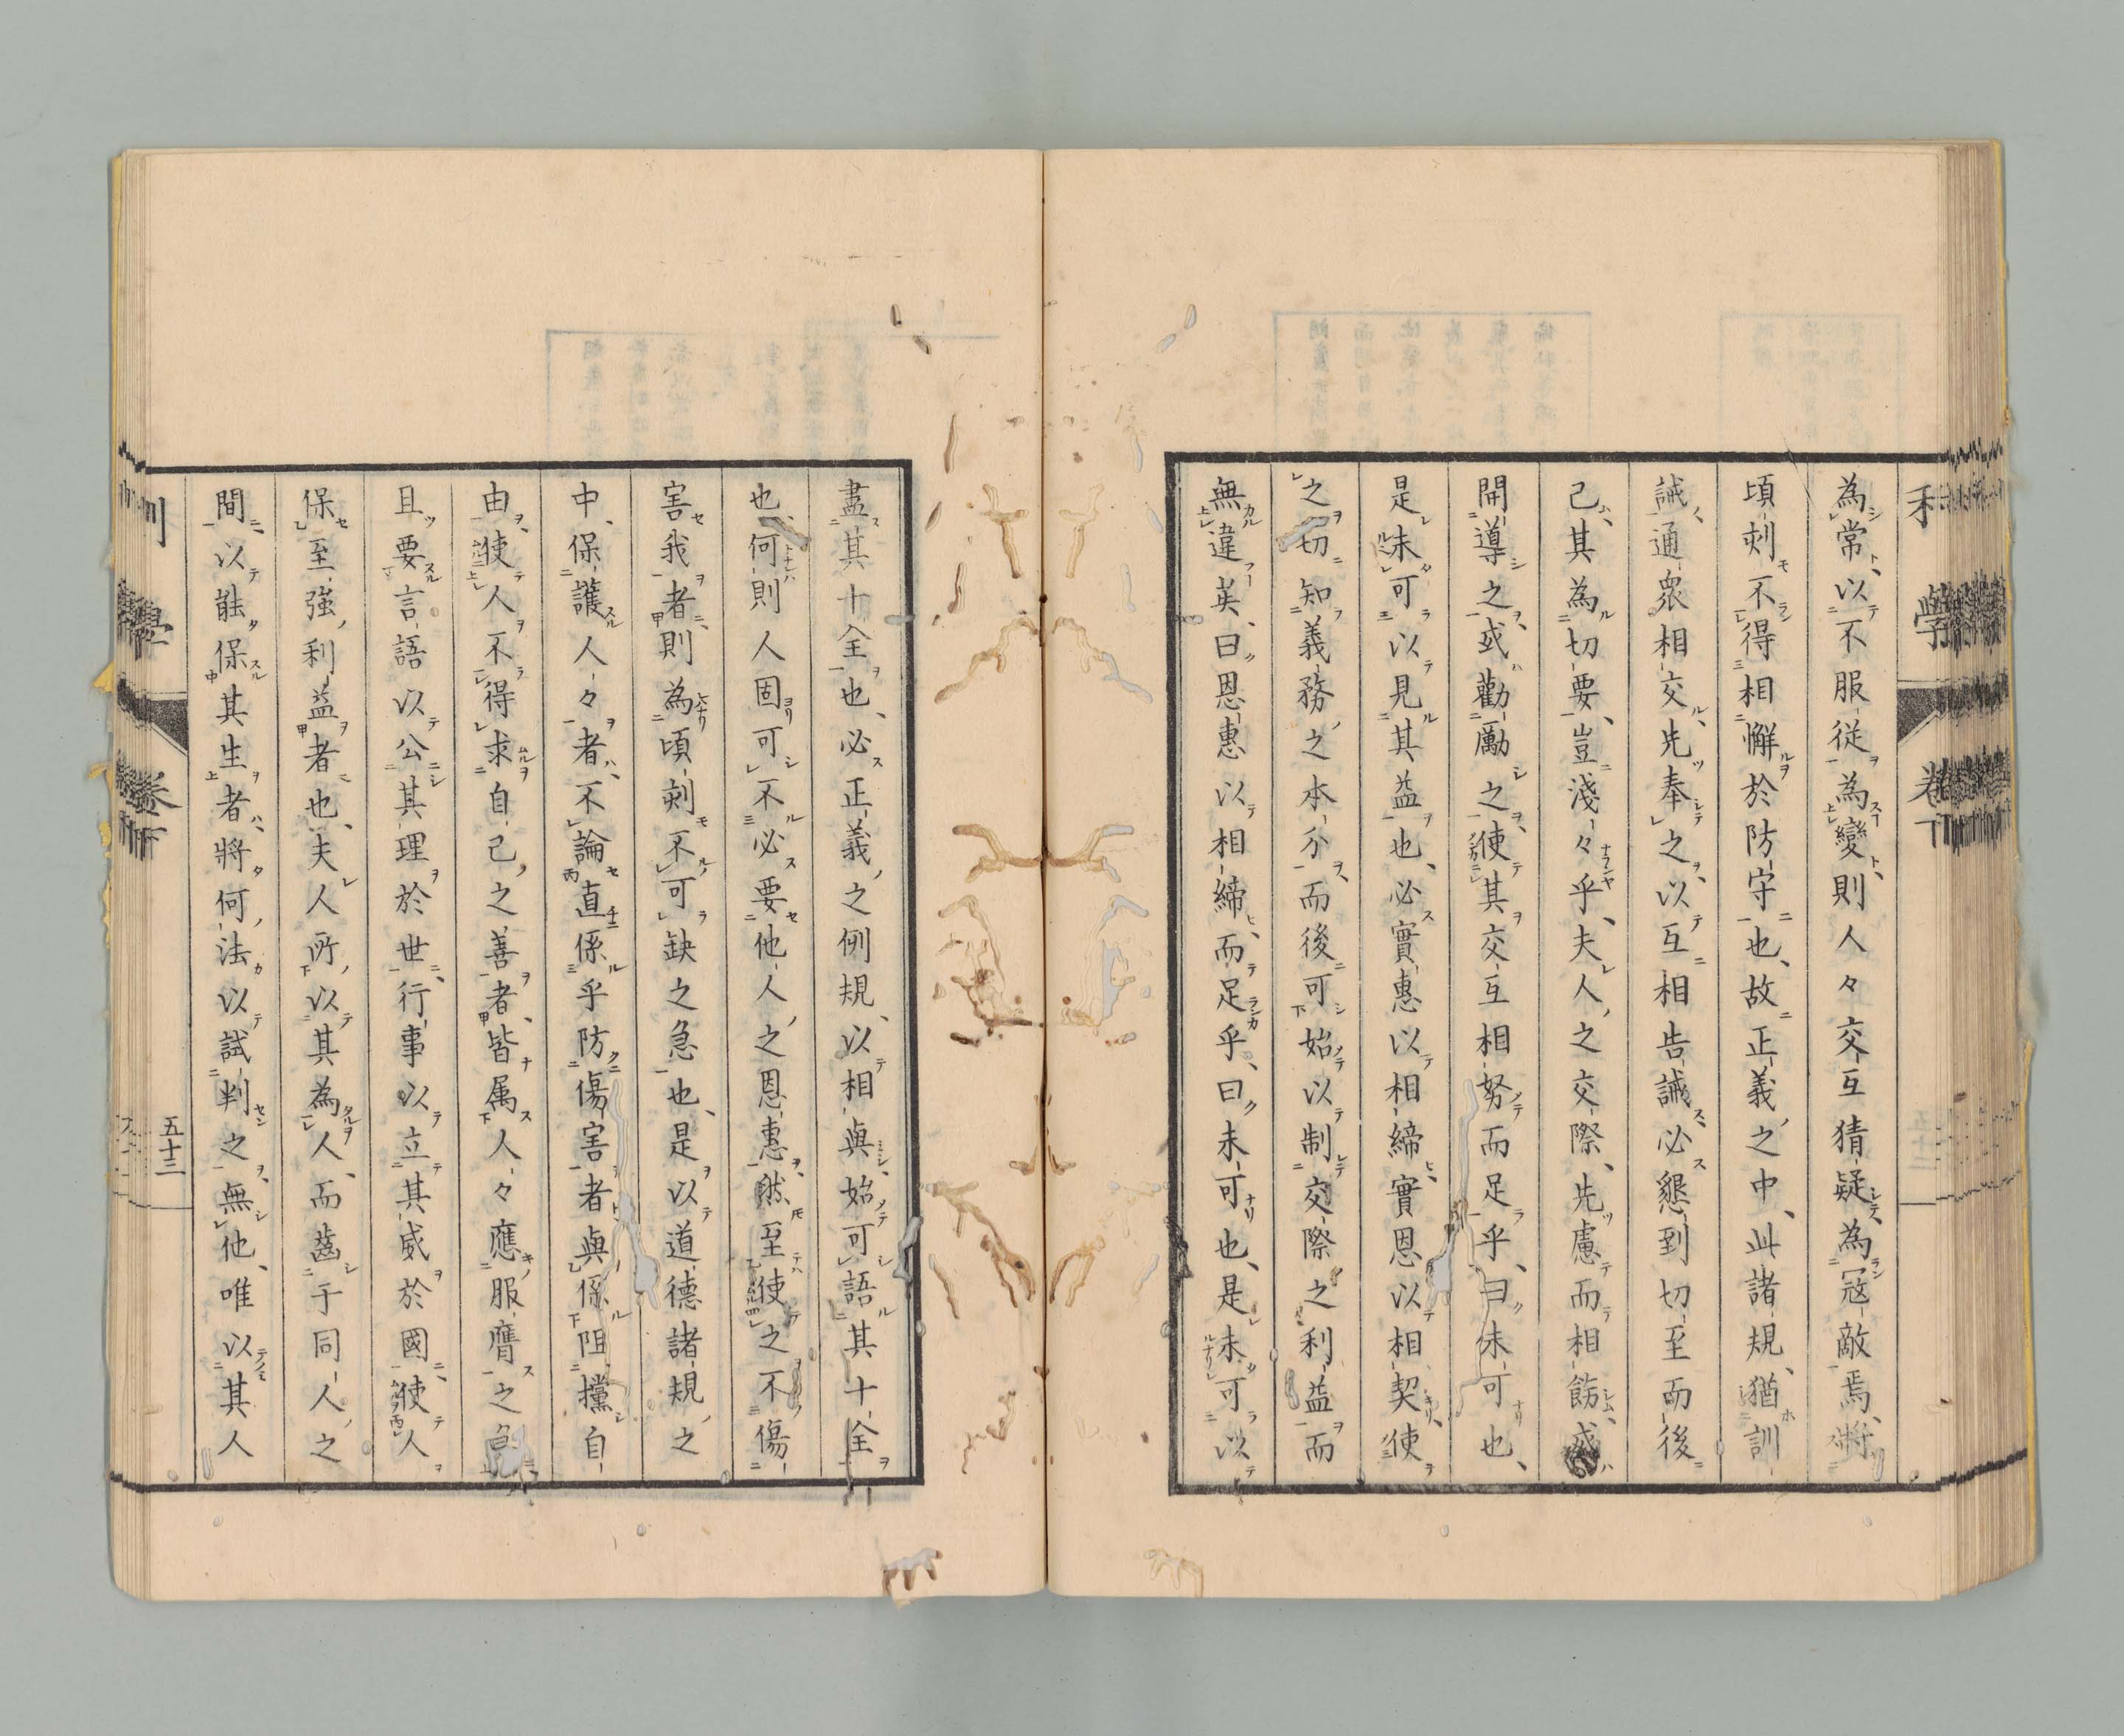 為常、以不服従為變、則人々交互猜疑、為冦敵焉、將
頃刻不得相懈於防守也、故正義之中、此諸規、猶訓
誡通衆相交、先奉之、以互相告誡、必懇到切至而後
己、其為切要、豈淺々乎、夫人之交際、先慮而相飭、或
開導之、或勸勵之、使其交互相努而足乎、曰未可也、
是未可以見其益也、必實惠以相締、實恩以相契、使
之切知義務之本分、而後可始以制交際之利益而
無違矣、曰恩惠以相締、而足乎、曰未可也、是未可以
盡其十全也、必正義之例規、以相與、始可語其十全
也、何則人固可不必要他人之恩惠、然至使之不傷
害我者、則為頃刻不可缺之急也、是以道德諸規之
中、保護人々者、不論直係乎防傷害者與係阻攩自
由、使人不得求自己之善者、皆属人々應服膺之急
且要言語以公其理於世、行事以立其威於國、使人
保至強利益者也、夫人所以其為人、而齒于同人之
間、以能保其生者、將何法以試判之、無他、唯以其人
利 學 卷下
五十三